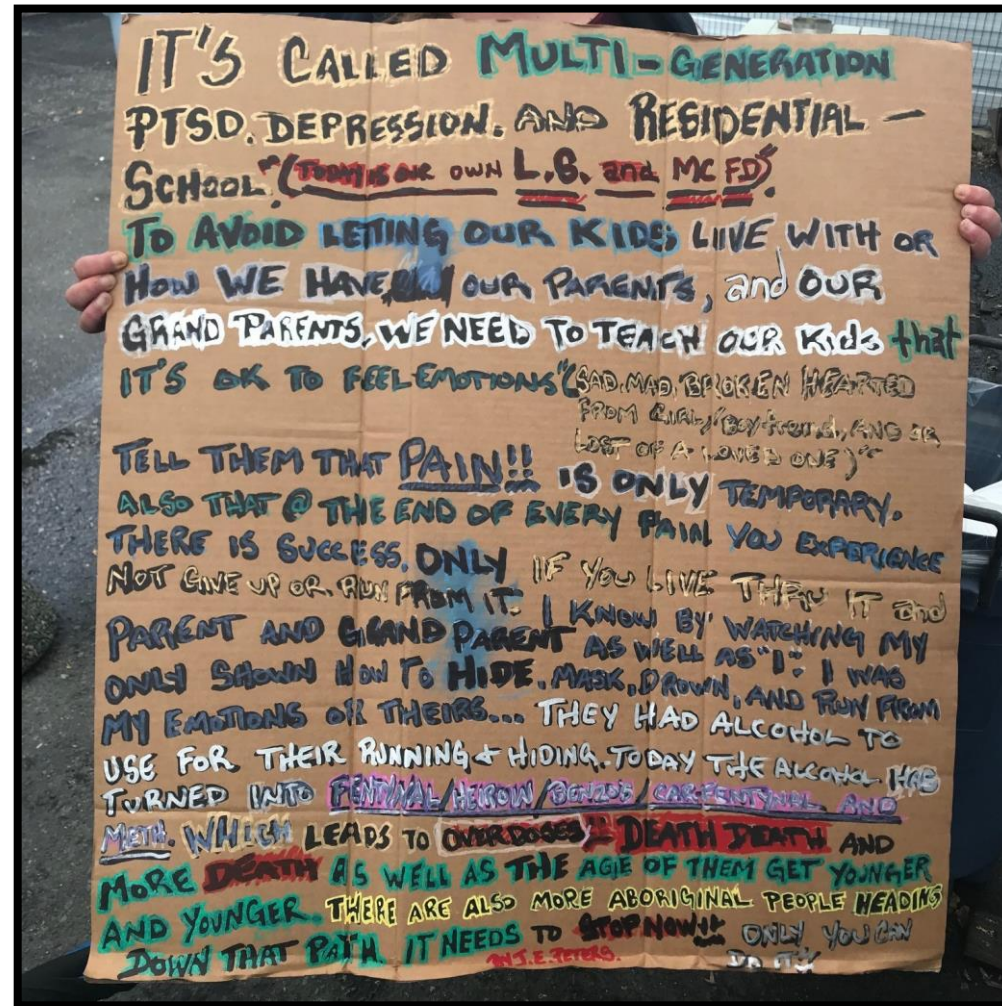 IT'S CALLED MULTI-GENERATION
PTSD. DEPRESSION. AND RESIDENTIAL -
SCHOOL. "(TODAY IS OUR OWN L.S. and MCFD)".
TO AVOID LETTING OUR KIDS LIVE WITH OR
HOW WE HAVE, OUR PARENTS, and OUR
GRAND PARENTS, WE NEED TO TEACH OUR Kids that
IT'S OK TO FEEL EMOTIONS "(SAD, MAD, BROKEN HEARTED
FROM GIRL/Boyfriend, AND OR
LOST OF A LOVED ONE)"
TELL THEM THAT PAIN!! IS ONLY TEMPORARY.
ALSO THAT @ THE END OF EVERY PAIN YOU EXPERIENCE
THERE IS SUCCESS. ONLY IF YOU LIVE THRU IT and
NOT GIVE UP OR RUN FROM IT. I KNOW BY WATCHING MY
PARENT AND GRAND PARENT AS WELL AS "I". I WAS
ONLY SHOWN HOW TO HIDE, MASK, DROWN, AND RUN FROM
MY EMOTIONS OR THEIRS... THEY HAD ALCOHOL TO
USE FOR THEIR RUNNING & HIDING. TODAY THE ALCOHOL HAS
TURNED INTO FENTYNAL/HEIROW/BENZOS/CARFENTYNAL AND
METH. WHICH LEADS TO OVERDOSES!! DEATH DEATH AND
MORE DEATH AS WELL AS THE AGE OF THEM GET YOUNGER
AND YOUNGER. THERE ARE ALSO MORE ABORIGINAL PEOPLE HEADING
DOWN THAT PATH. IT NEEDS TO STOP NOW!! ONLY YOU CAN
DO IT!!
BY J.E. PETERS.